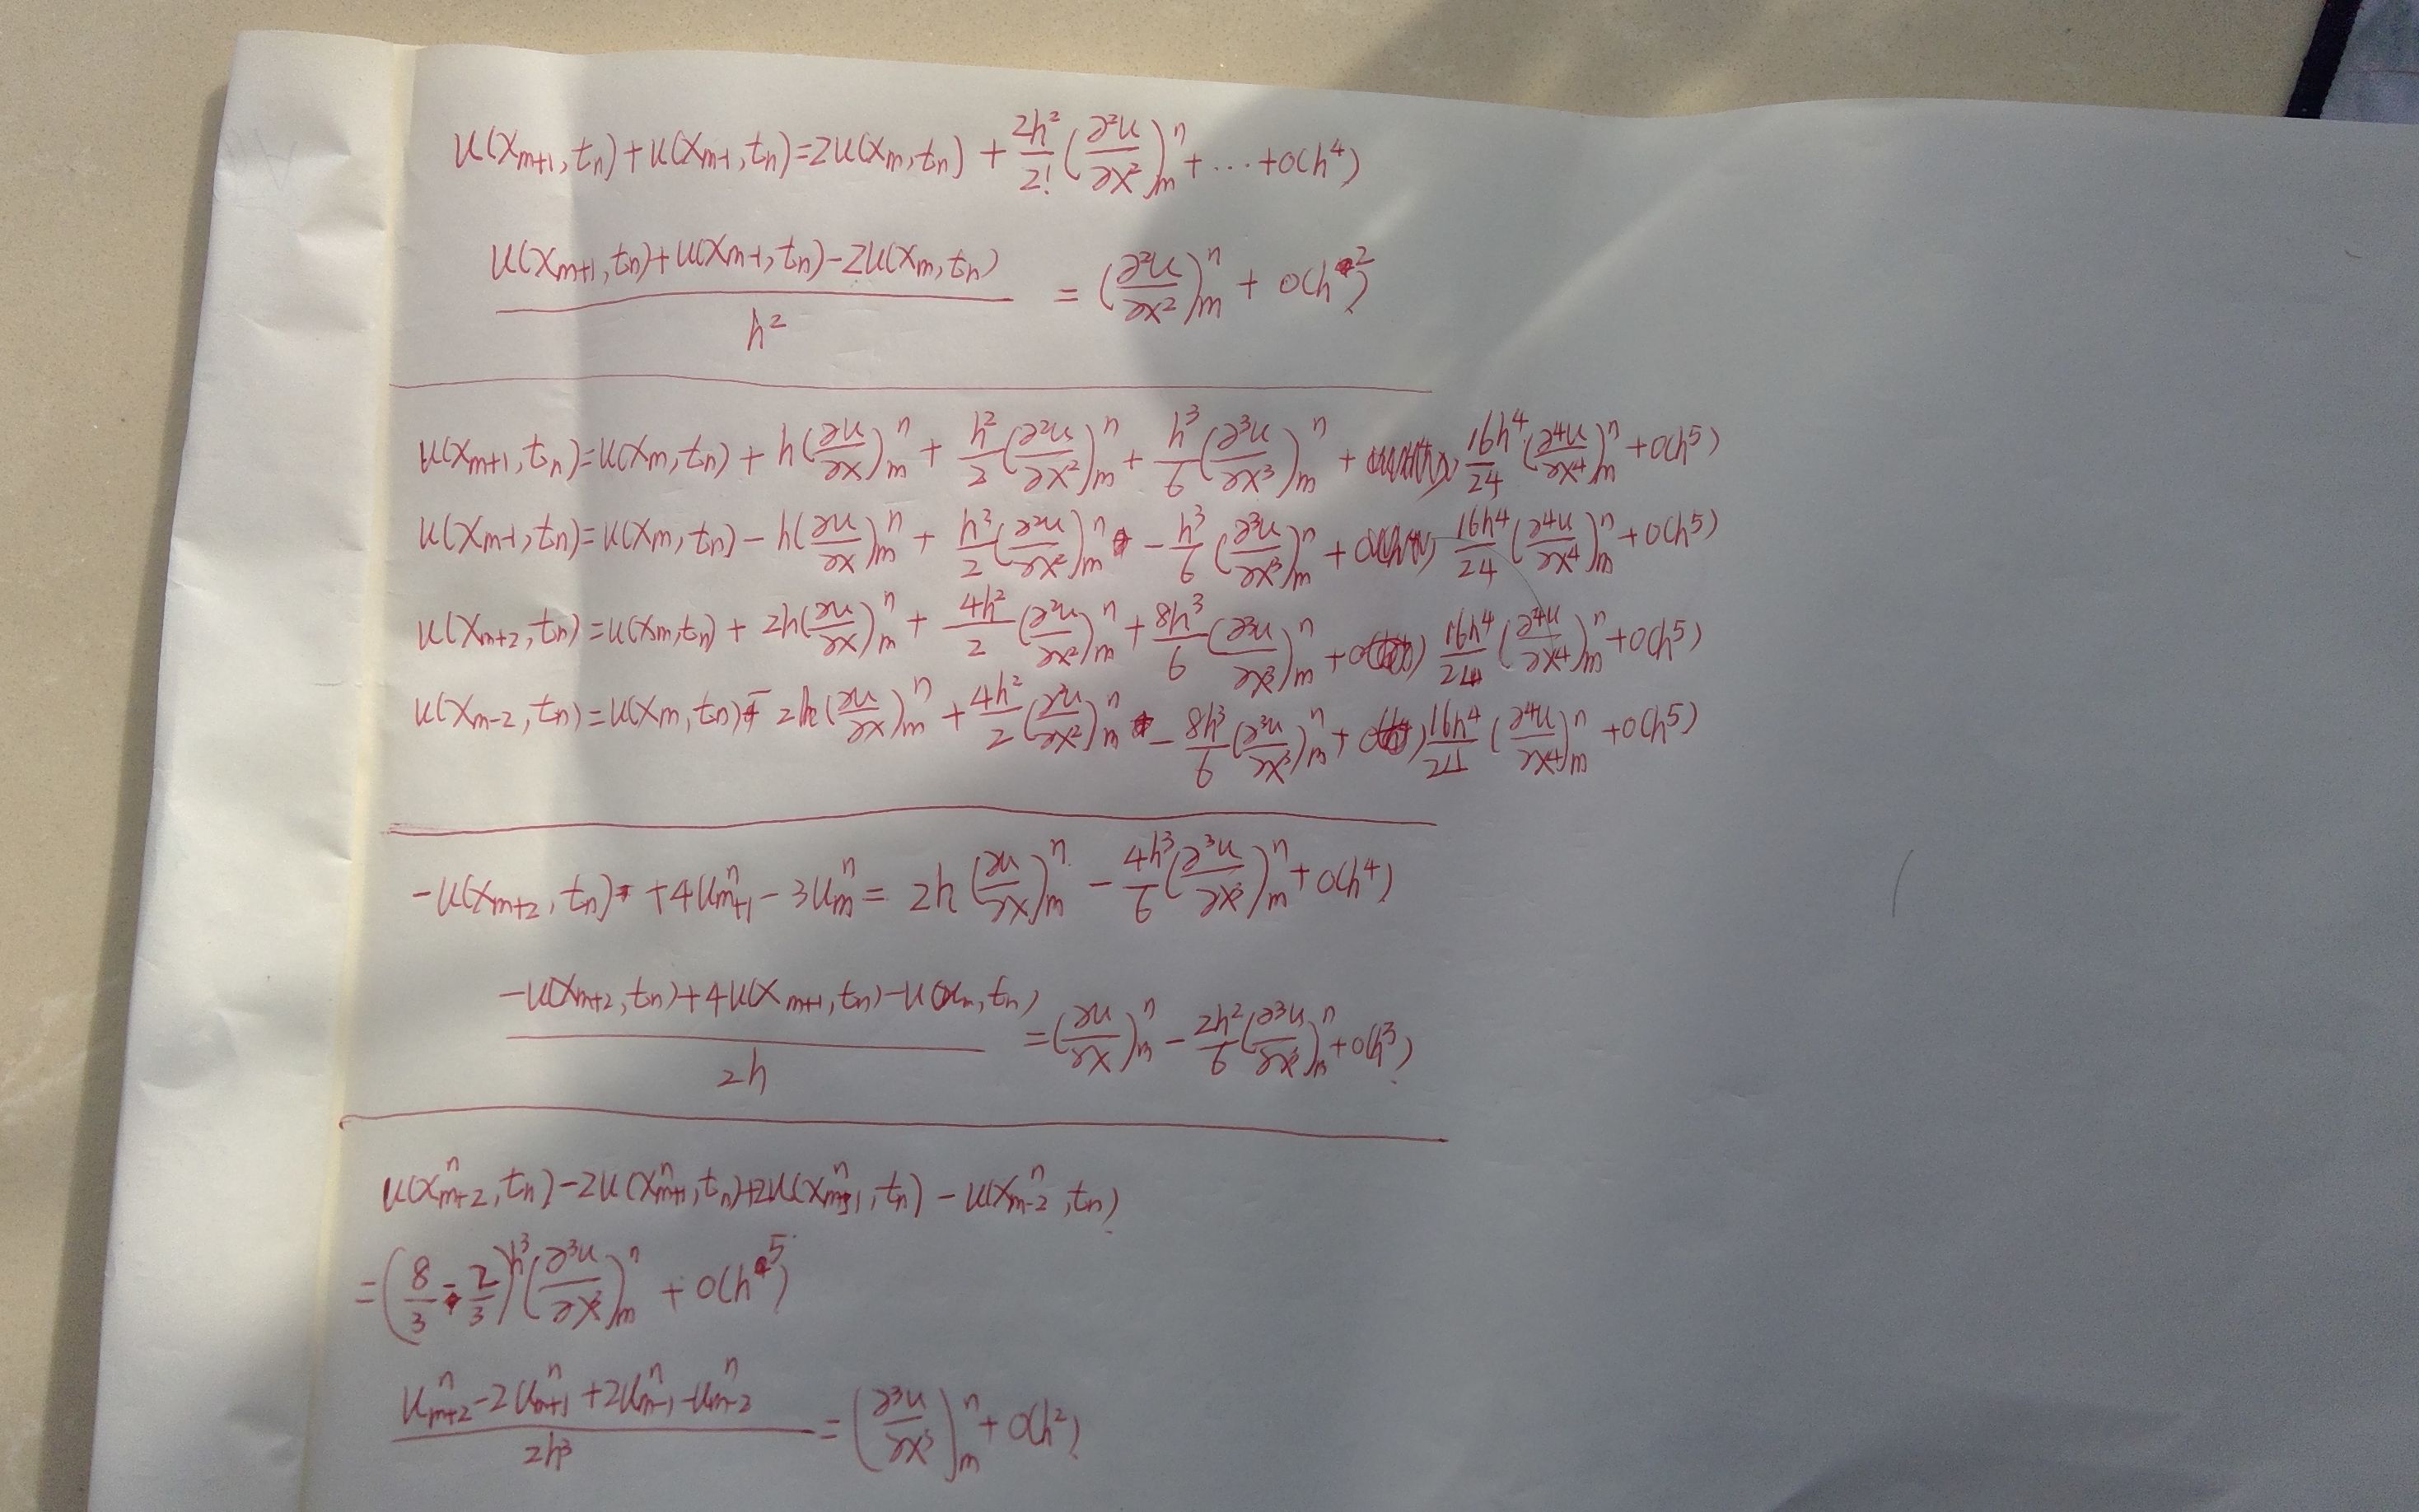 u(x_{m+1}, t_n) + u(x_{m-1}, t_n) = 2u(x_m, t_n) + \frac{2h^2}{2!} (\frac{∂^2u}{∂x^2})_m^n + ... + o(h^4)
\frac{u(x_{m+1}, t_n) + u(x_{m-1}, t_n) - 2u(x_m, t_n)}{h^2} = (\frac{∂^2u}{∂x^2})_m^n + o(h^2)
u(x_{m+1}, t_n) = u(x_m, t_n) + h(\frac{∂u}{∂x})_m^n + \frac{h^2}{2} (\frac{∂^2u}{∂x^2})_m^n + \frac{h^3}{6} (\frac{∂^3u}{∂x^3})_m^n + \frac{16h^4}{24} (\frac{∂^4u}{∂x^4})_m^n + o(h^5)
u(x_{m-1}, t_n) = u(x_m, t_n) - h(\frac{∂u}{∂x})_m^n + \frac{h^2}{2} (\frac{∂^2u}{∂x^2})_m^n - \frac{h^3}{6} (\frac{∂^3u}{∂x^3})_m^n + \frac{16h^4}{24} (\frac{∂^4u}{∂x^4})_m^n + o(h^5)
u(x_{m+2}, t_n) = u(x_m, t_n) + 2h(\frac{∂u}{∂x})_m^n + \frac{4h^2}{2} (\frac{∂^2u}{∂x^2})_m^n + \frac{8h^3}{6} (\frac{∂^3u}{∂x^3})_m^n + \frac{16h^4}{24} (\frac{∂^4u}{∂x^4})_m^n + o(h^5)
u(x_{m-2}, t_n) = u(x_m, t_n) - 2h(\frac{∂u}{∂x})_m^n + \frac{4h^2}{2} (\frac{∂^2u}{∂x^2})_m^n - \frac{8h^3}{6} (\frac{∂^3u}{∂x^3})_m^n + \frac{16h^4}{24} (\frac{∂^4u}{∂x^4})_m^n + o(h^5)
-u(x_{m+2}, t_n) + 4u_{m+1}^n - 3u_m^n = 2h (\frac{∂u}{∂x})_m^n - \frac{4h^3}{6} (\frac{∂^3u}{∂x^3})_m^n + o(h^4)
\frac{-u(x_{m+2}, t_n) + 4u(x_{m+1}, t_n) - u(x_m, t_n)}{2h} = (\frac{∂u}{∂x})_m^n - \frac{2h^2}{6} (\frac{∂^3u}{∂x^3})_m^n + o(h^3)
u(x_{m+2}^n, t_n) - 2u(x_{m+1}^n, t_n) + 2u(x_{m-1}^n, t_n) - u(x_{m-2}^n, t_n)
= (\frac{8}{3} - \frac{2}{3})h^3 (\frac{∂^3u}{∂x^3})_m^n + o(h^5)
\frac{u_{m+2}^n - 2u_{m+1}^n + 2u_{m-1}^n - u_{m-2}^n}{2h^3} = (\frac{∂^3u}{∂x^3})_m^n + o(h^2)